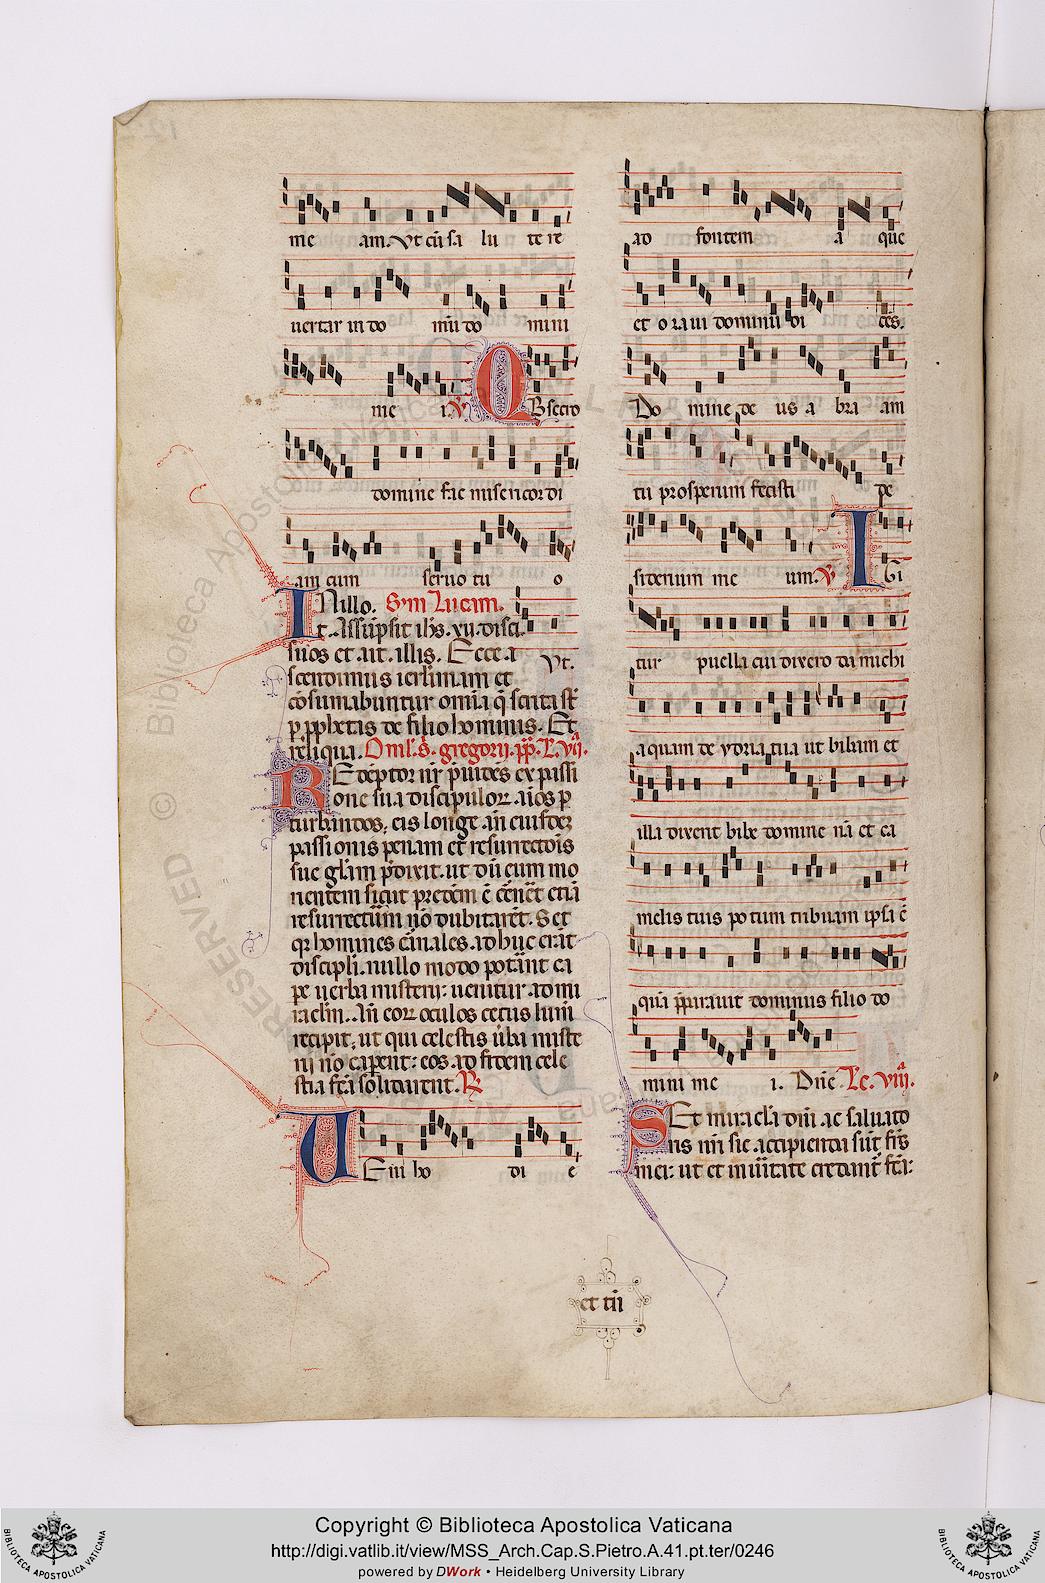 me am. Vt cū sa lu te re
uertar in do mū do mini
me i. ℣. Obsecro
domine fac misericordi
am cum seruo tu o
IN illo. Sm̄ Lucam.
t. Assūpsit ihs. xii. disci
suos et. ait. illis. Ecce a
scendimus ierlimam et Vt.
cōsumabuntur omnia q̄ scripta st̄
p. pphetas de filio hominis. Et
reliqua. Oml'. s̄. gregorii. pp̄. L. vii.
Redēptor nr̄ p̄uidēs ex passi
one sua discipuloꝝ. aīos p
turbandos, eis longe. an̄ eiusdē
passionis penam et resurrectōis
sue gl'am p̄dixit. ut dū eum mo
rientem sicut predcm̄ ē cernēt etiā
resurrecturū nō dubitarēt. Set
qꝛ homines carnales. adhuc erāt
discipli. nullo modo poterant ca
pe uerba misterii: uenitur ad mi
raclm̄. An̄ eoꝝ oculos cecus lum̄
recipit, ut qui celestis ūba miste
rii nō caperent: eos. ad fidem cele
stia fc̄a solidarent. ℟
Veni ho di e
ad fontem a que
et oraui dominū di cēs.
Domine de us abra am
tu prosperum fecisti de
siderium me um. ℣. Igi
tur puella cui dixero da michi
aquam de ydria tua ut bibam et
illa dixerit bibe domine nā et ca
melis tuis potum tribuam ipsa ē
quā p̄parauit dominus filio do
mini me i. Dn̄e. Lc. viii.
Set miracl'a dn̄i ac saluato
ris nr̄i sic accipienda sūt frs̄
mei: ut et in ūitate credant̄ fc̄a:
et tn̄
Copyright © Biblioteca Apostolica Vaticana
http://digi.vatlib.it/view/MSS_Arch.Cap.S.Pietro.A.41.pt.ter/0246
powered by DWork • Heidelberg University Library
BIBLIOTECA APOSTOLICA VATICANA
BIBLIOTECA APOSTOLICA VATICANA